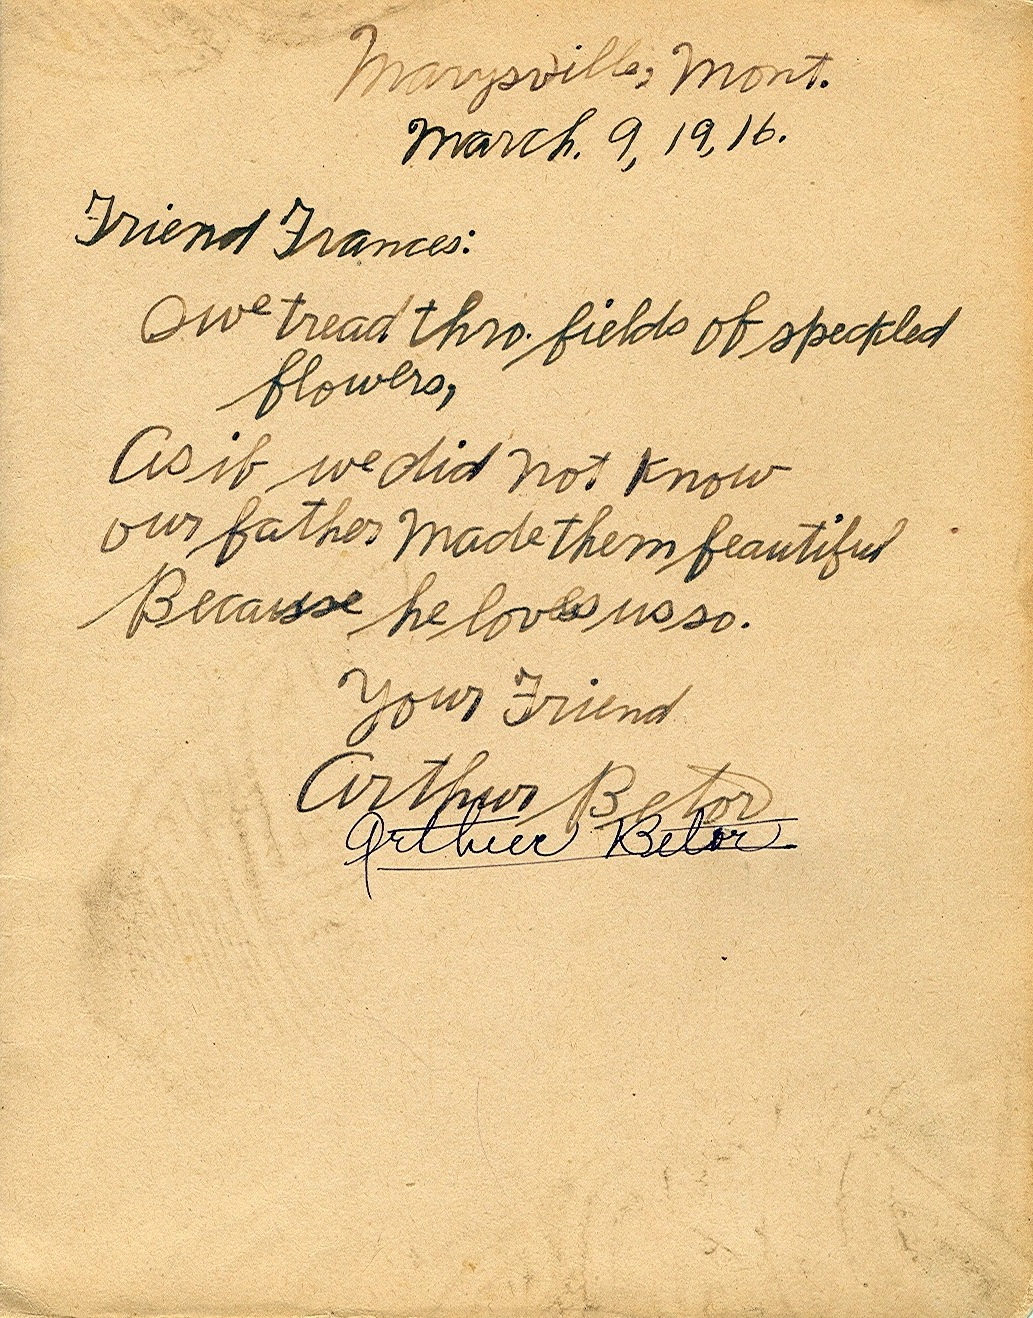 Marysville, Mont.
March. 9, 19,16.
Friend Frances:
O we tread thro. fields of speckled
flowers,
As if we did not know
our father made them beautiful
Because he loves us so.
Your Friend
Arthur Betor
Arthur Betor